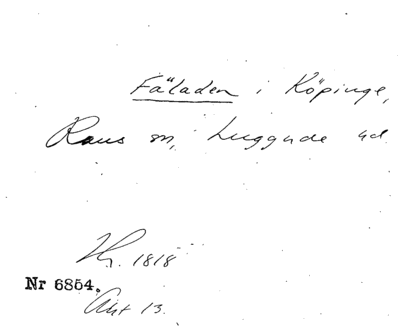 Fäladen i Köpinge,
Raus sn, Luggude hd
Hr. 1818
Nr 6854.
Akt 13.